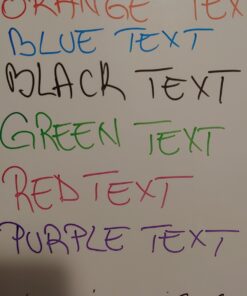 ORANGE TEX
BLUE TEXT
BLACK TEXT
GREEN TEXT
RED TEXT
PURPLE TEXT